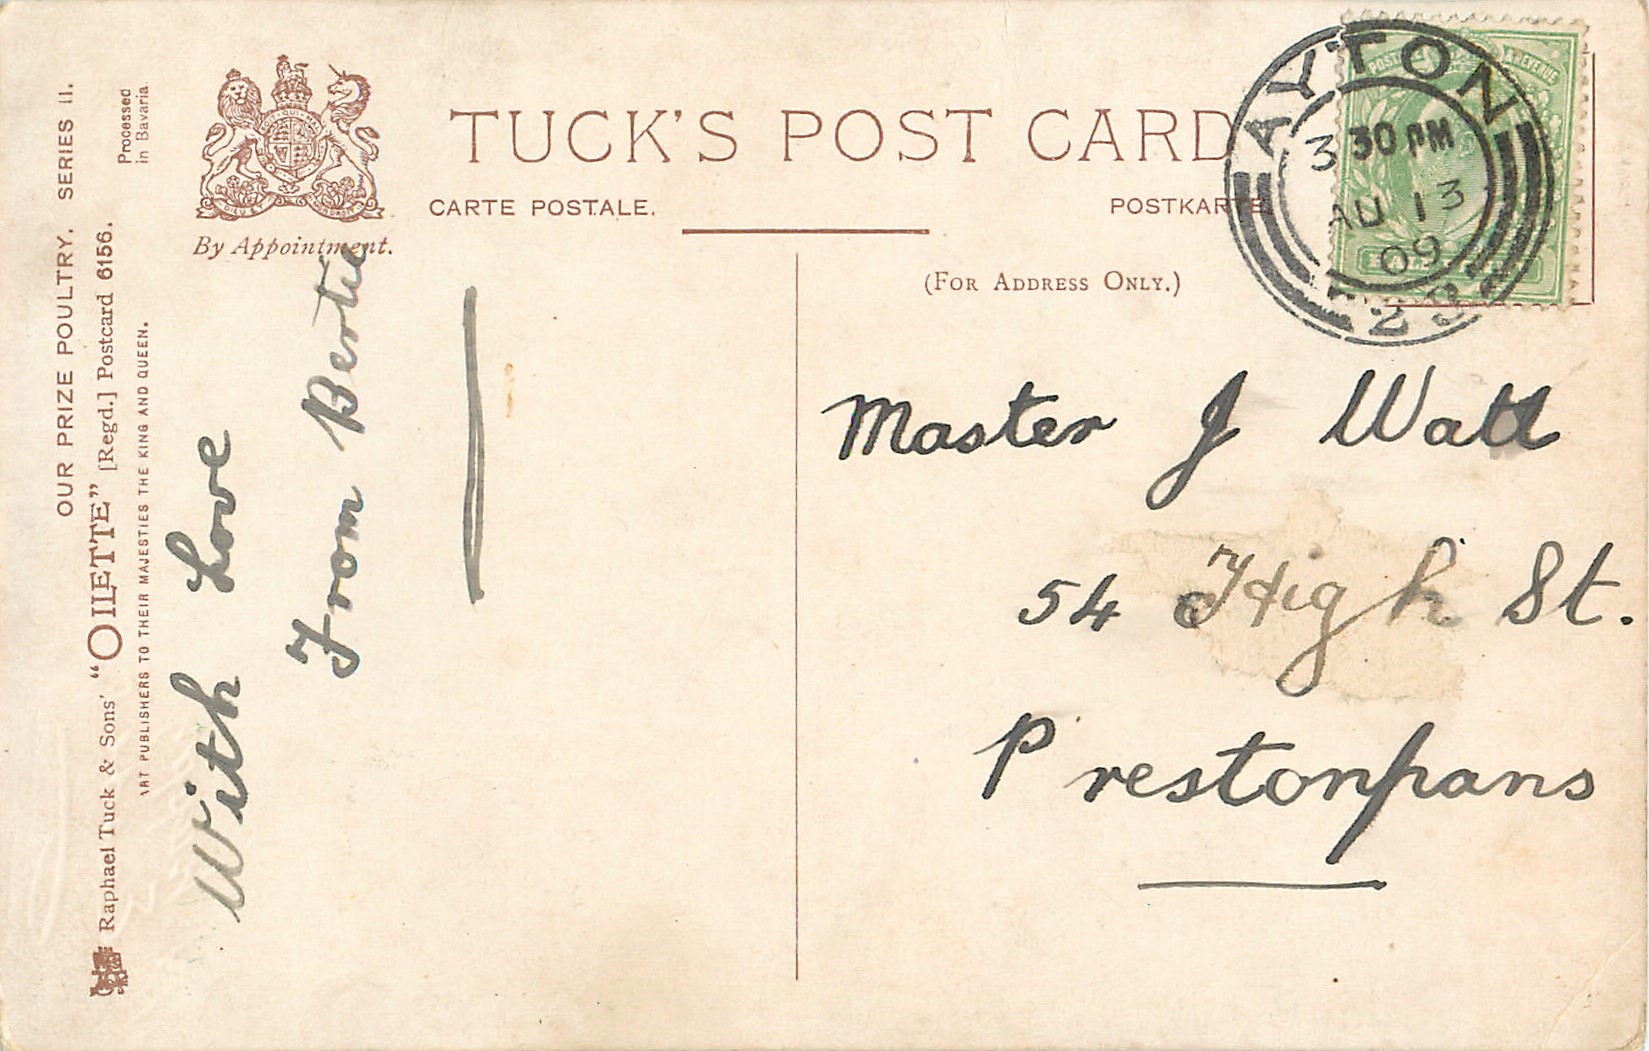 OUR PRIZE POULTRY. SERIES II.
Raphael Tuck & Sons' "OILETTE" [Regd.] Postcard 6156.
ART PUBLISHERS TO THEIR MAJESTIES THE KING AND QUEEN.
Processed
in Bavaria.
By Appointment.
TUCK'S POST CARD
CARTE POSTALE.
POSTKARTE
(FOR ADDRESS ONLY.)
AYTON
3 30 PM
AU 13
09
POSTAGE
REVENUE
With Love
From Bertie
Master J Watt
54 High St.
Prestonpans